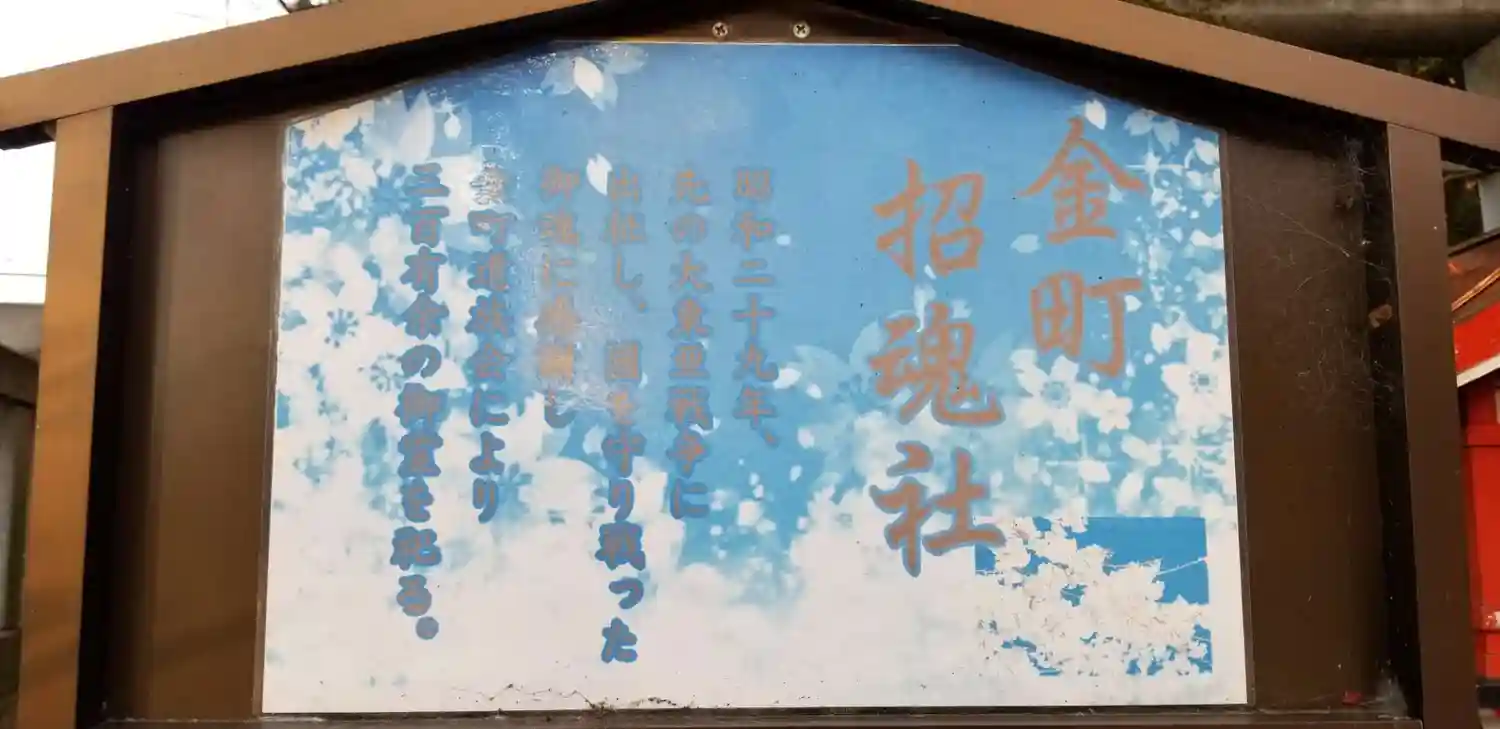 金町
招魂社
昭和二十九年、
先の大東亜戦争に
出征し、国を守り戦った
御魂に感謝し
金町遺族会により
三百有余の御霊を祀る。